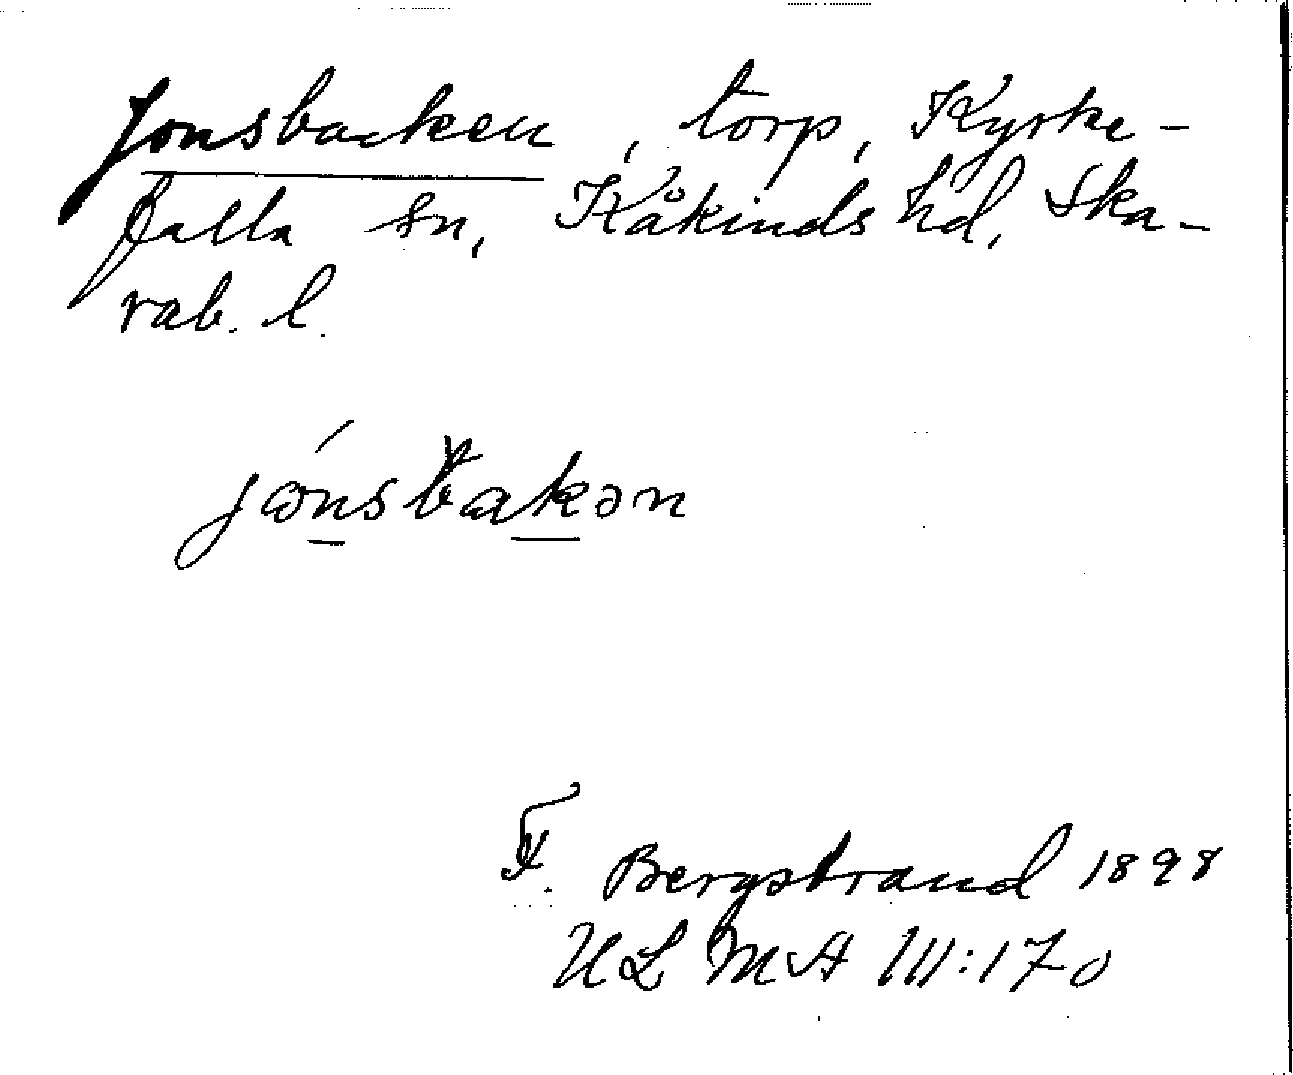 Jonsbacken, torp, Kyrke-
falla sn, Kåkinds hd, Ska-
rab. l.
F. Bergstrand 1898
ULMA III:170